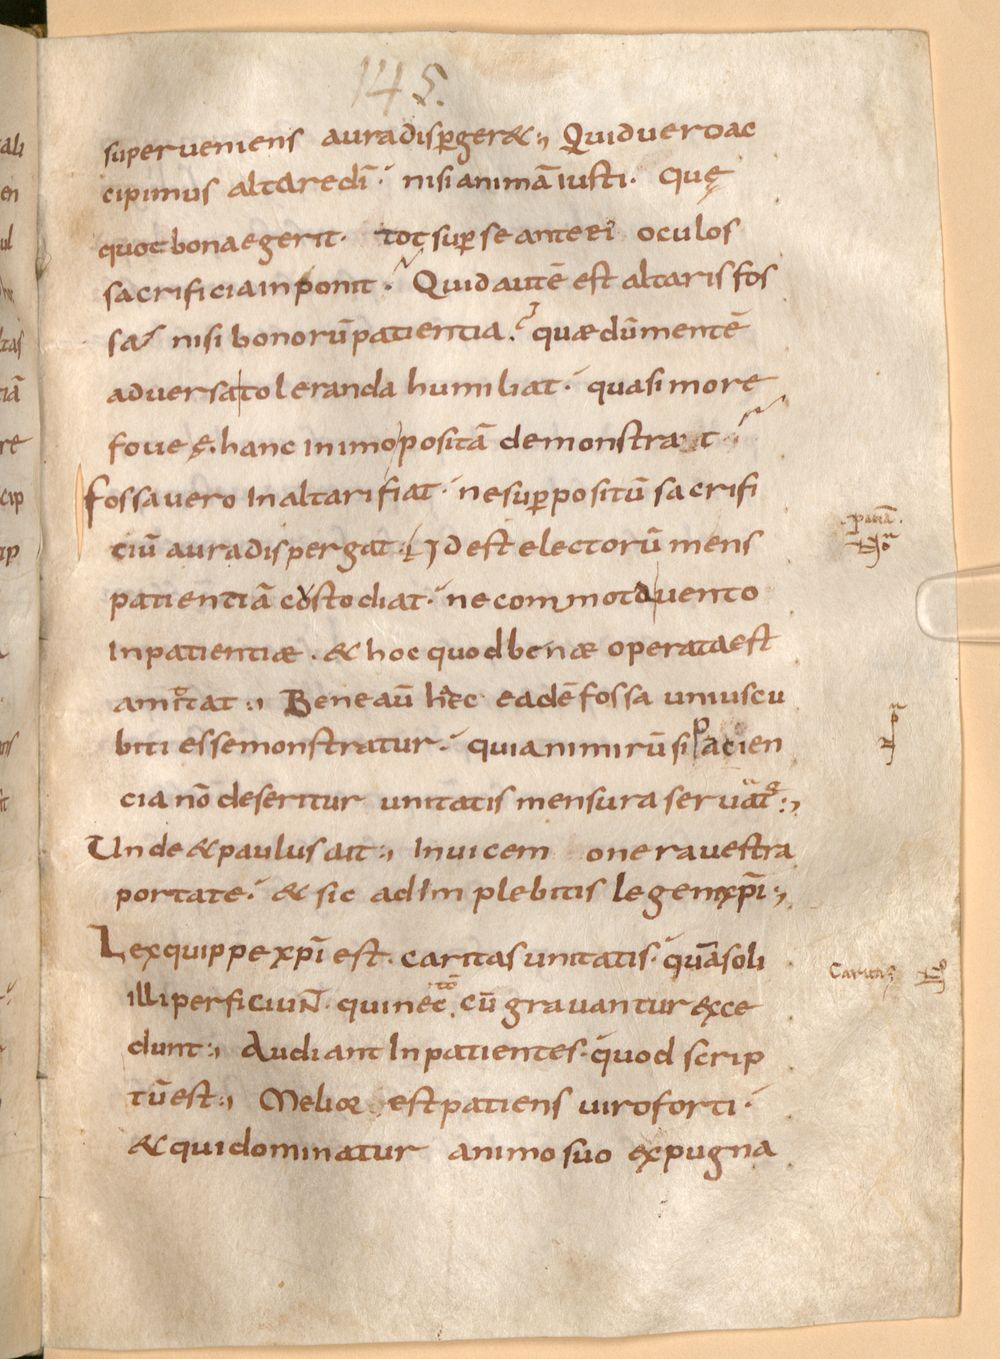 145.
superueniens aura dispergeret:, Quid uero ac
cipimus altare dī· nisi animā iusti· Quę
quot bona egerit· tot super se ante ei oculos
sacrificia inponit· Quid autē est altaris fos
sa nisi bonorū patientia· quae dū mentē
aduersa toleranda humiliat· quasi more
foueę· hanc in imo positā demonstrat·
fossa uero In altari fiat· ne superpositū sacrifi
ciū aura dispergat· Id est electorū mens
patientiā custodiat· ne commota uento
Inpatientiae· & hoc quod bene operata est
amittat:, Bene aū hęc eadē fossa unius cu
biti esse monstratur· quia nimirū si pacien
cia nō deseritur unitatis mensura seruat:,
Unde & paulus ait:, Inuicem onera uestra
portate· & sic adImplebitis legem xp̄i:,
Lex quippe xp̄i est· caritas unitatis· quā soli
illi perficiuN̄· qui nec cū grauantur exce
dunt:, Audiant Inpatientes· quod scrip
tū est:, Melior est patiens uiro forti·
& qui dominatur animo suo expugna
patiā.
Caritas